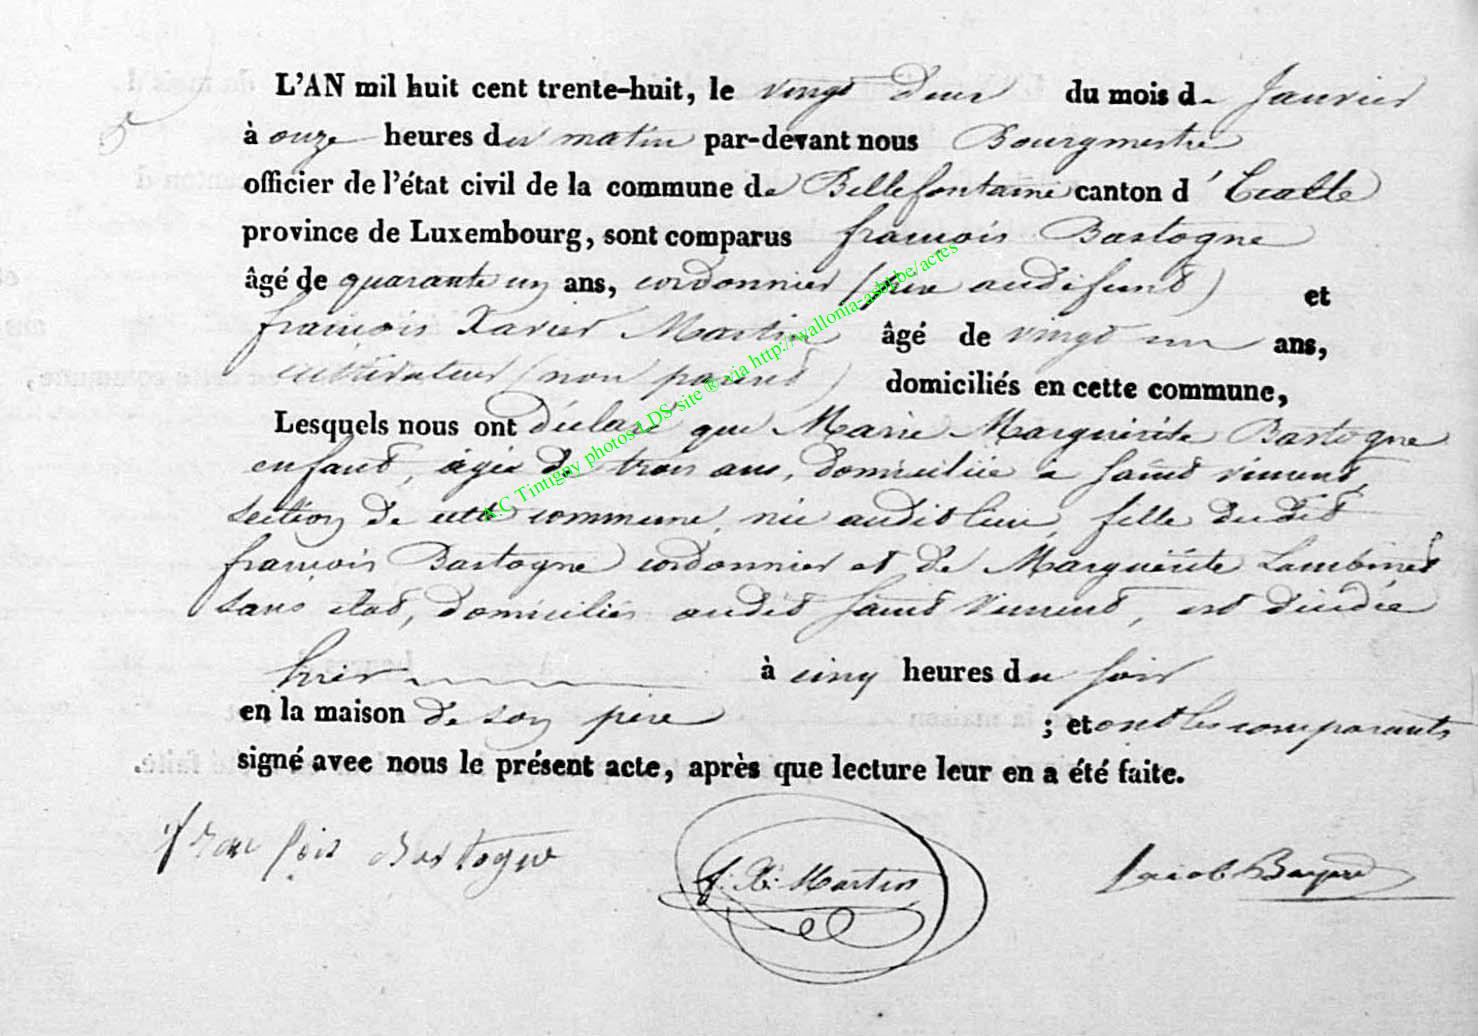 5
L'AN mil huit cent trente-huit, le vingt deux du mois de Janvier
à onze heures du matin par-devant nous Bourgmestre
officier de l'état civil de la commune de Bellefontaine canton d'Etalle
province de Luxembourg, sont comparus françois Bastogne
âgé de quarante un ans, cordonnier (père au défunt) et
françois Xavier Martin âgé de vingt un ans,
cultivateur (non parent) domiciliés en cette commune,
Lesquels nous ont déclaré que Marie Marguérite Bastogne
enfant, âgée de trois ans, domiciliée à Saint Vincent,
section de cette commune, née audit lieu, fille dudit
françois Bastogne cordonnier et de Marguérite Lambinet
sans état, domiciliés audit Saint Vincent, est décédée
hier à cinq heures du soir
en la maison de son père ; et ont les comparants
signé avec nous le présent acte, après que lecture leur en a été faite.
françois Bastogne
f: X: Martin
Jacob Bayard
A.C Tintigny photos LDS site ® via http://wallonia-asbl.be/actes